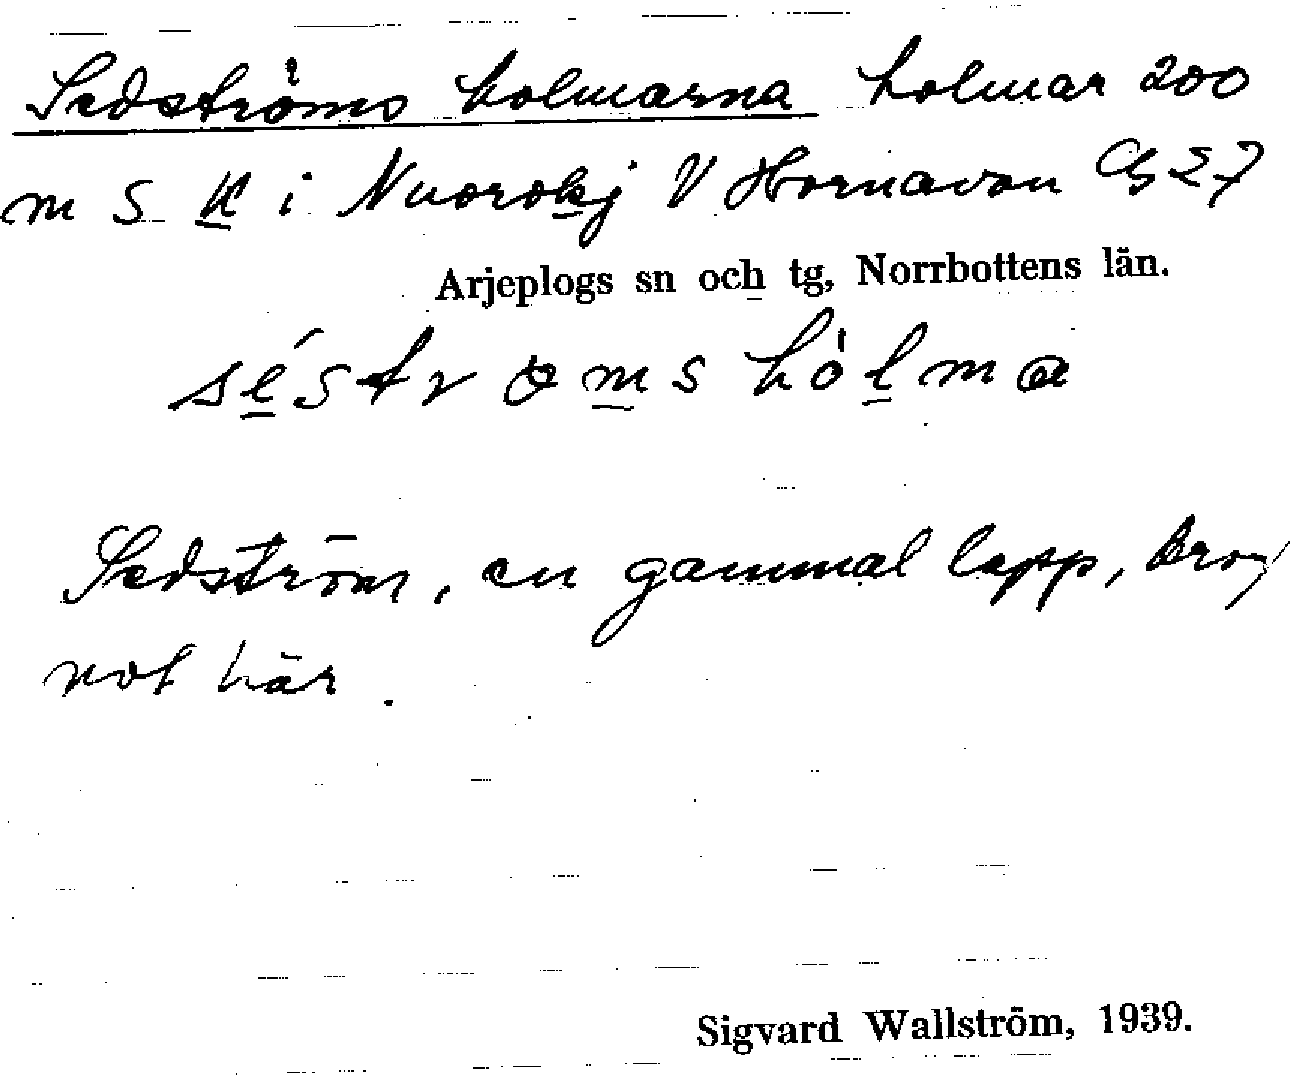 Sedströms holmarna holmar 200
m S K i Nuorokj V Hornavan G 27
Arjeplogs sn och tg, Norrbottens län.
séstrəms hòlmɑ
Sedström, en gammal lapp, drog
not här.
Sigvard Wallström, 1939.